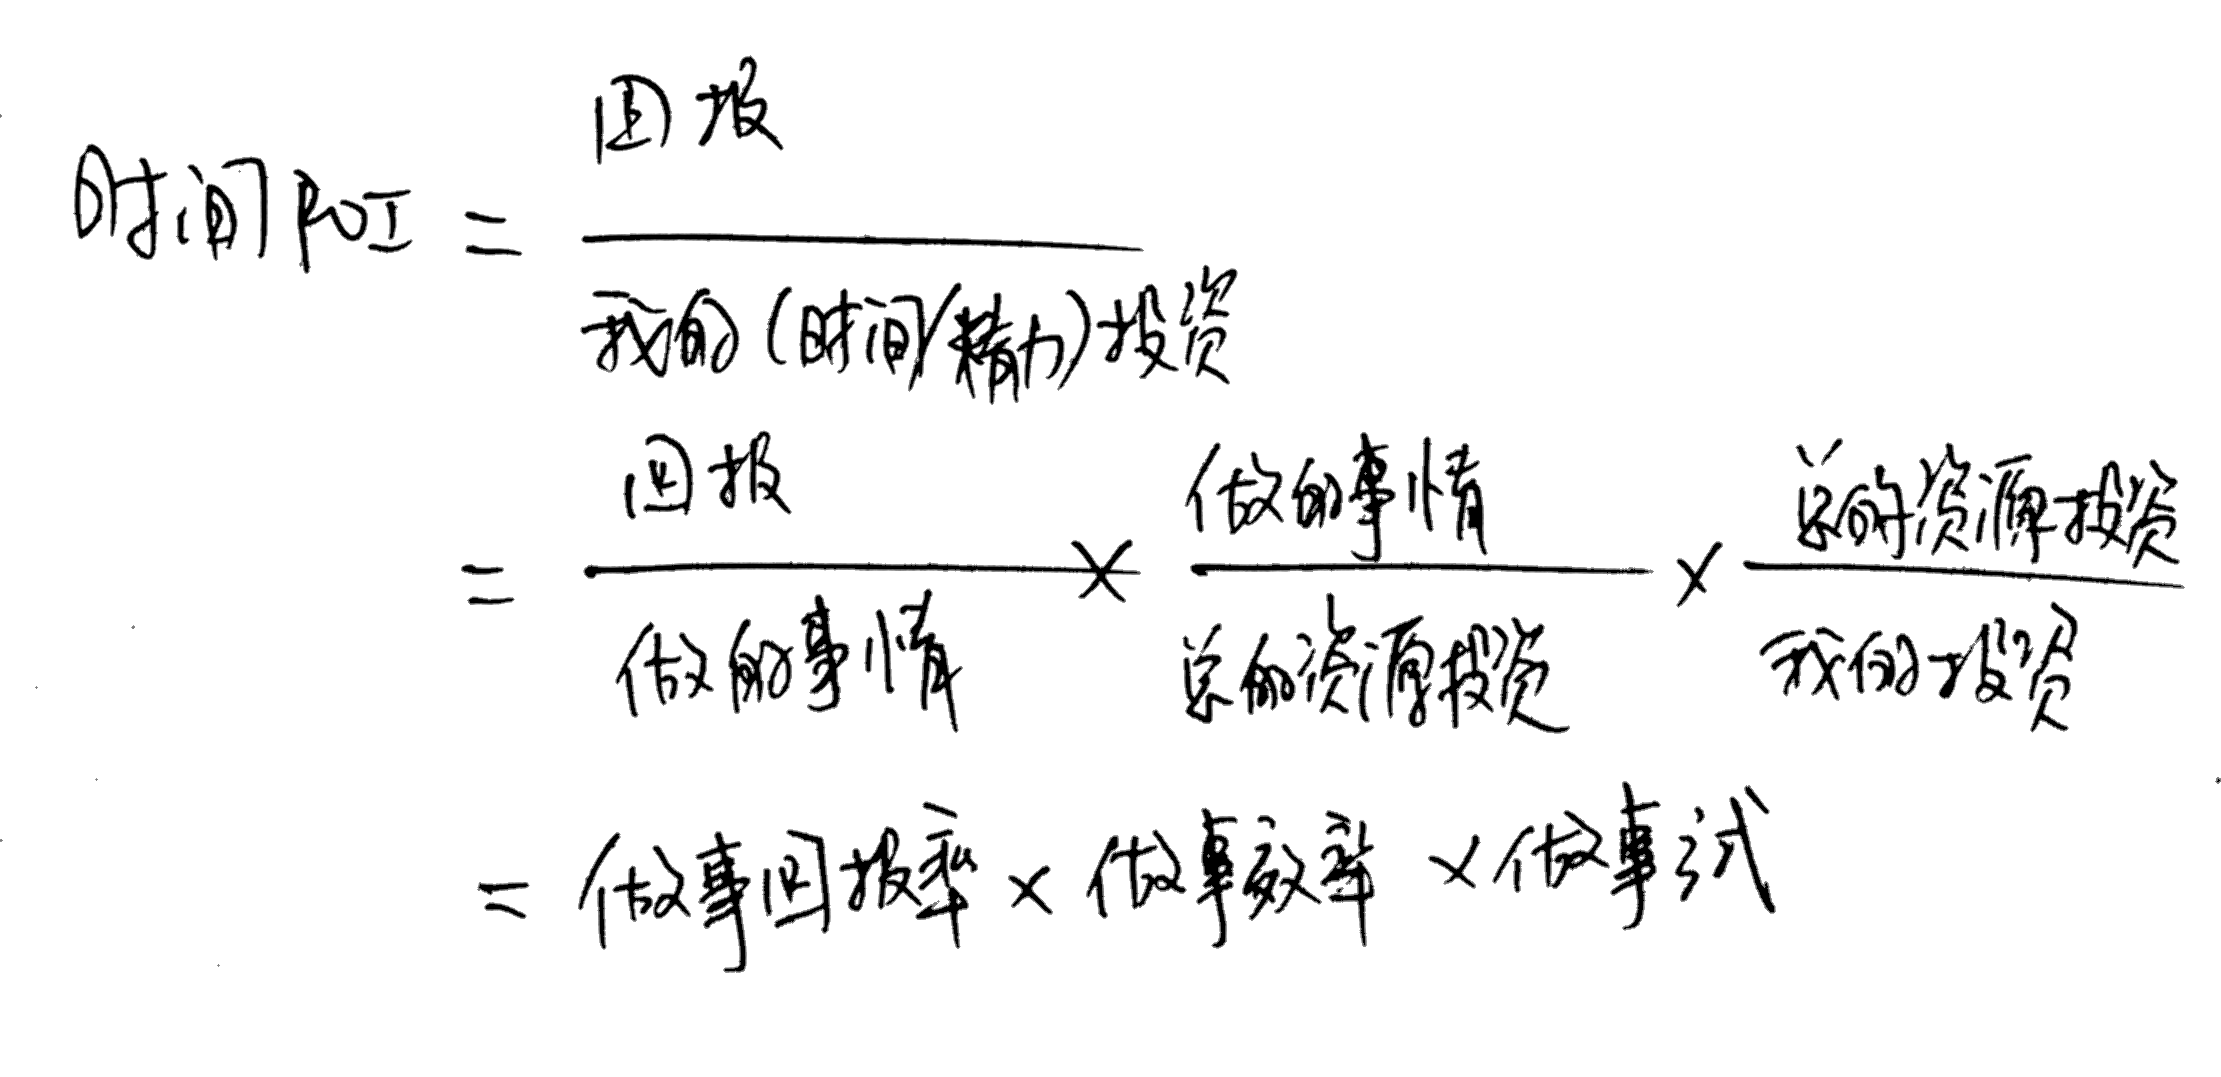 时间ROI = 回报
我的(时间/精力)投资
= 回报 × 做的事情 × 总的资源投资
做的事情 总的资源投资 我的投资
= 做事回报率 × 做事效率 × 做事